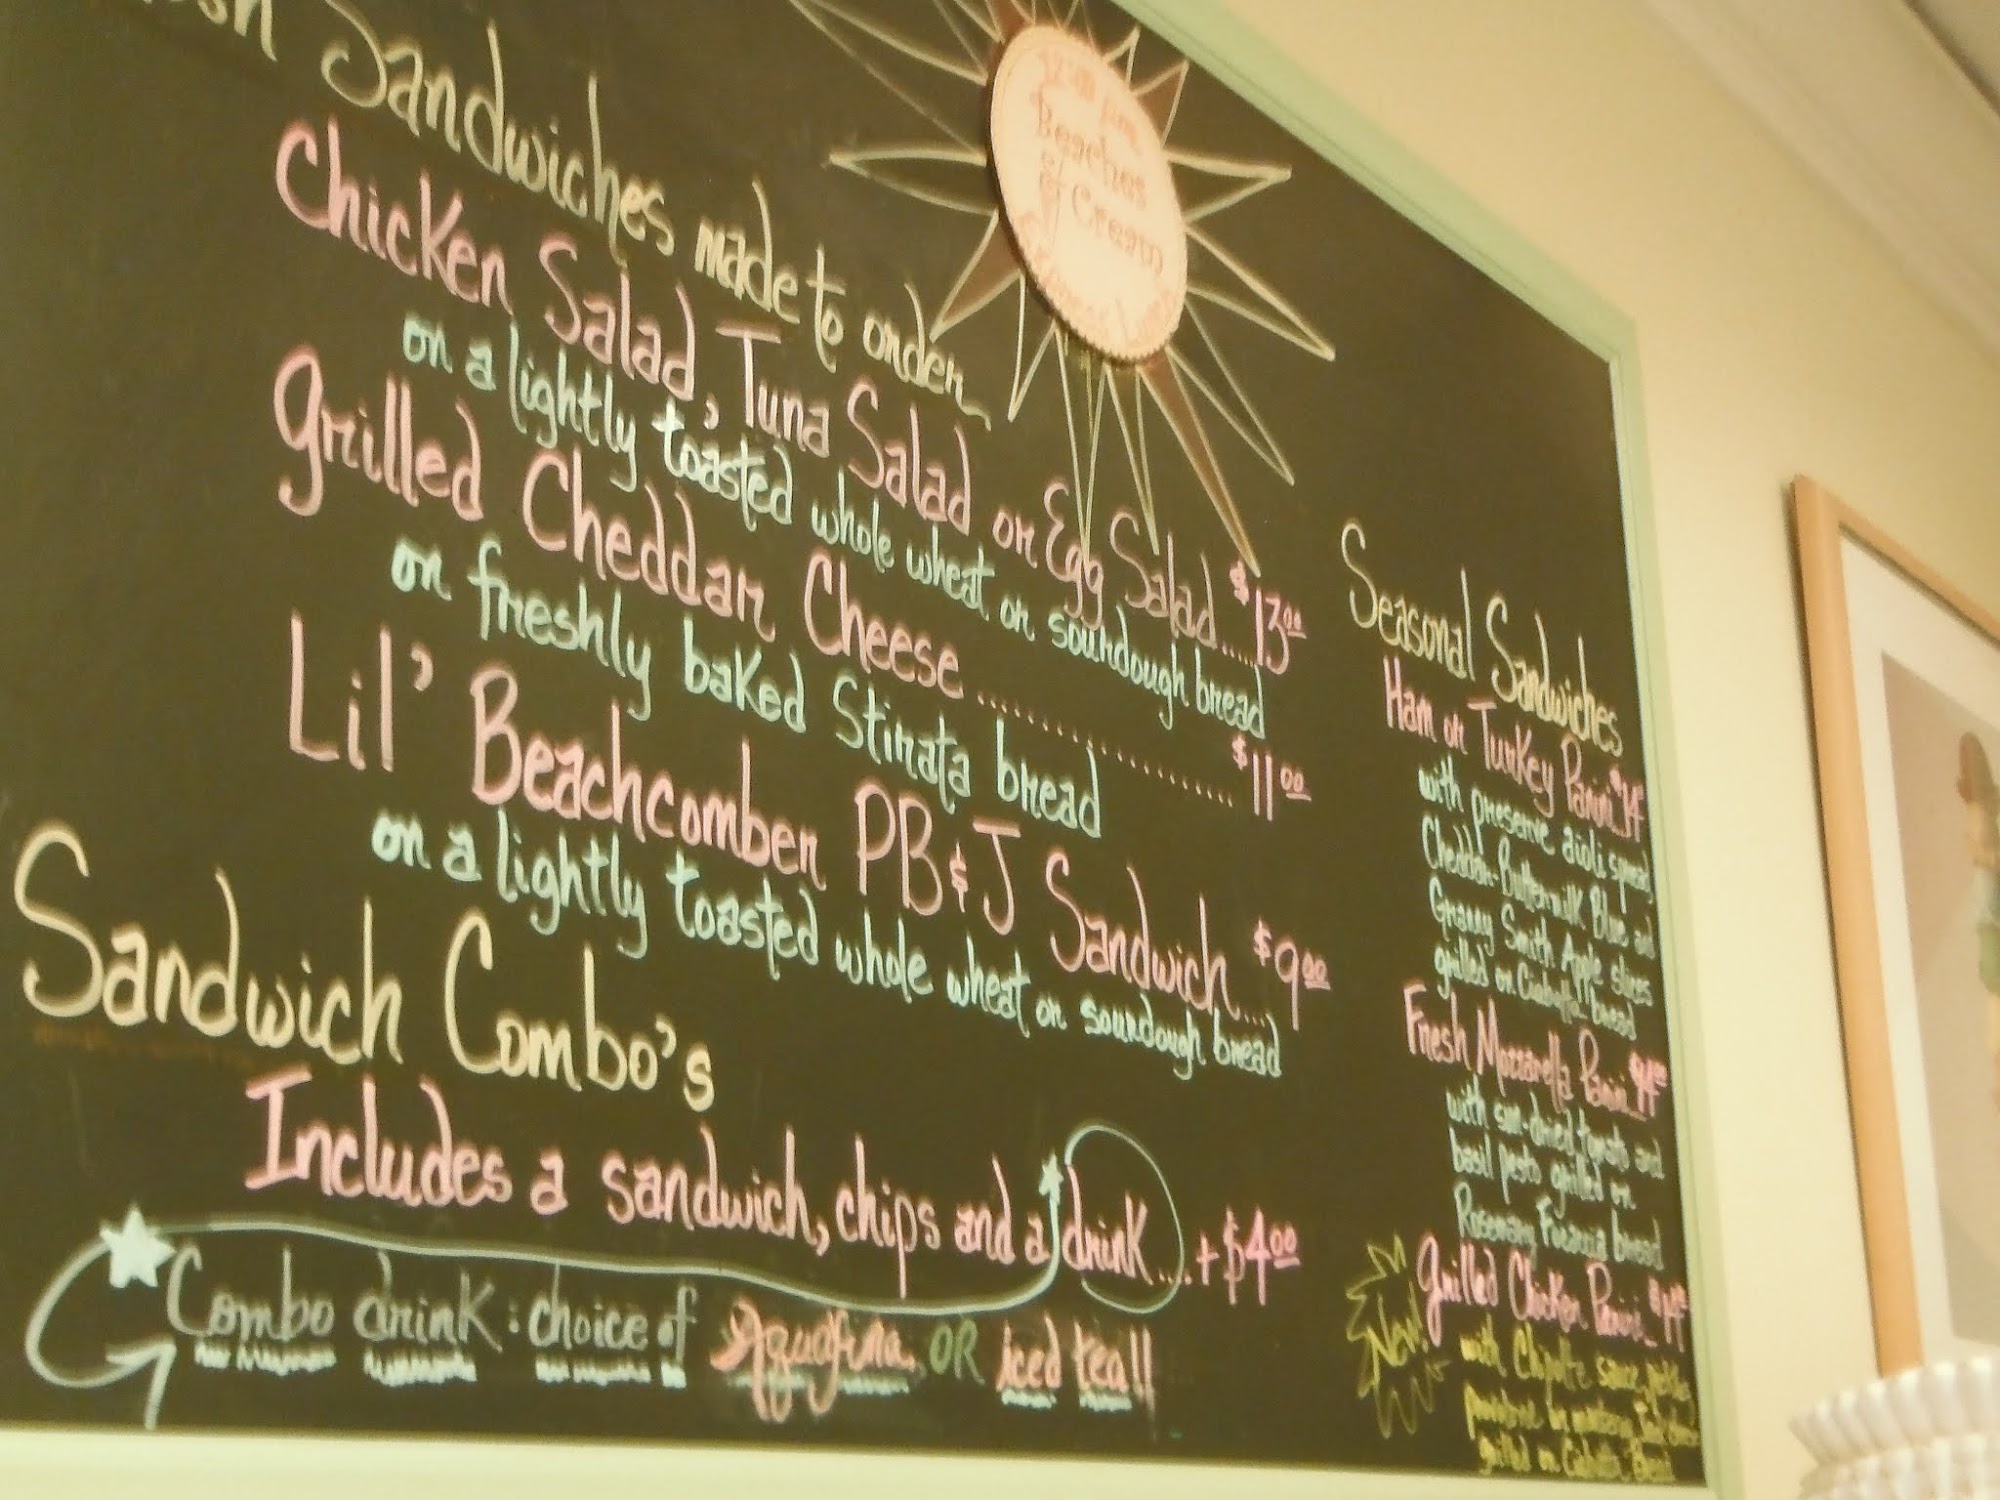 Sandwiches made to order
Chicken Salad, Tuna Salad or Egg Salad..... $13.00
on a lightly toasted whole wheat or sourdough bread
Grilled Cheddar Cheese .................... $11.00
on freshly baked Stirata bread
Lil' Beachcomber PB&J Sandwich.... $9.00
on a lightly toasted whole wheat or sourdough bread
Sandwich Combo's
Includes a sandwich, chips and a drink.... + $4.00
Combo drink: choice of Aquafina OR iced tea!!
Beaches
&
Cream
Seasonal Sandwiches
Ham or Turkey Panini
with preserve aioli spread
Cheddar-Buttermilk Blue and
Granny Smith Apple slices
grilled on Ciabatta bread
Fresh Mozzarella Panini
with sun-dried and
basil pesto grilled on
Rosemary Focaccia bread
New!
Grilled Chicken Panini
with Chipotle sauce
grilled on